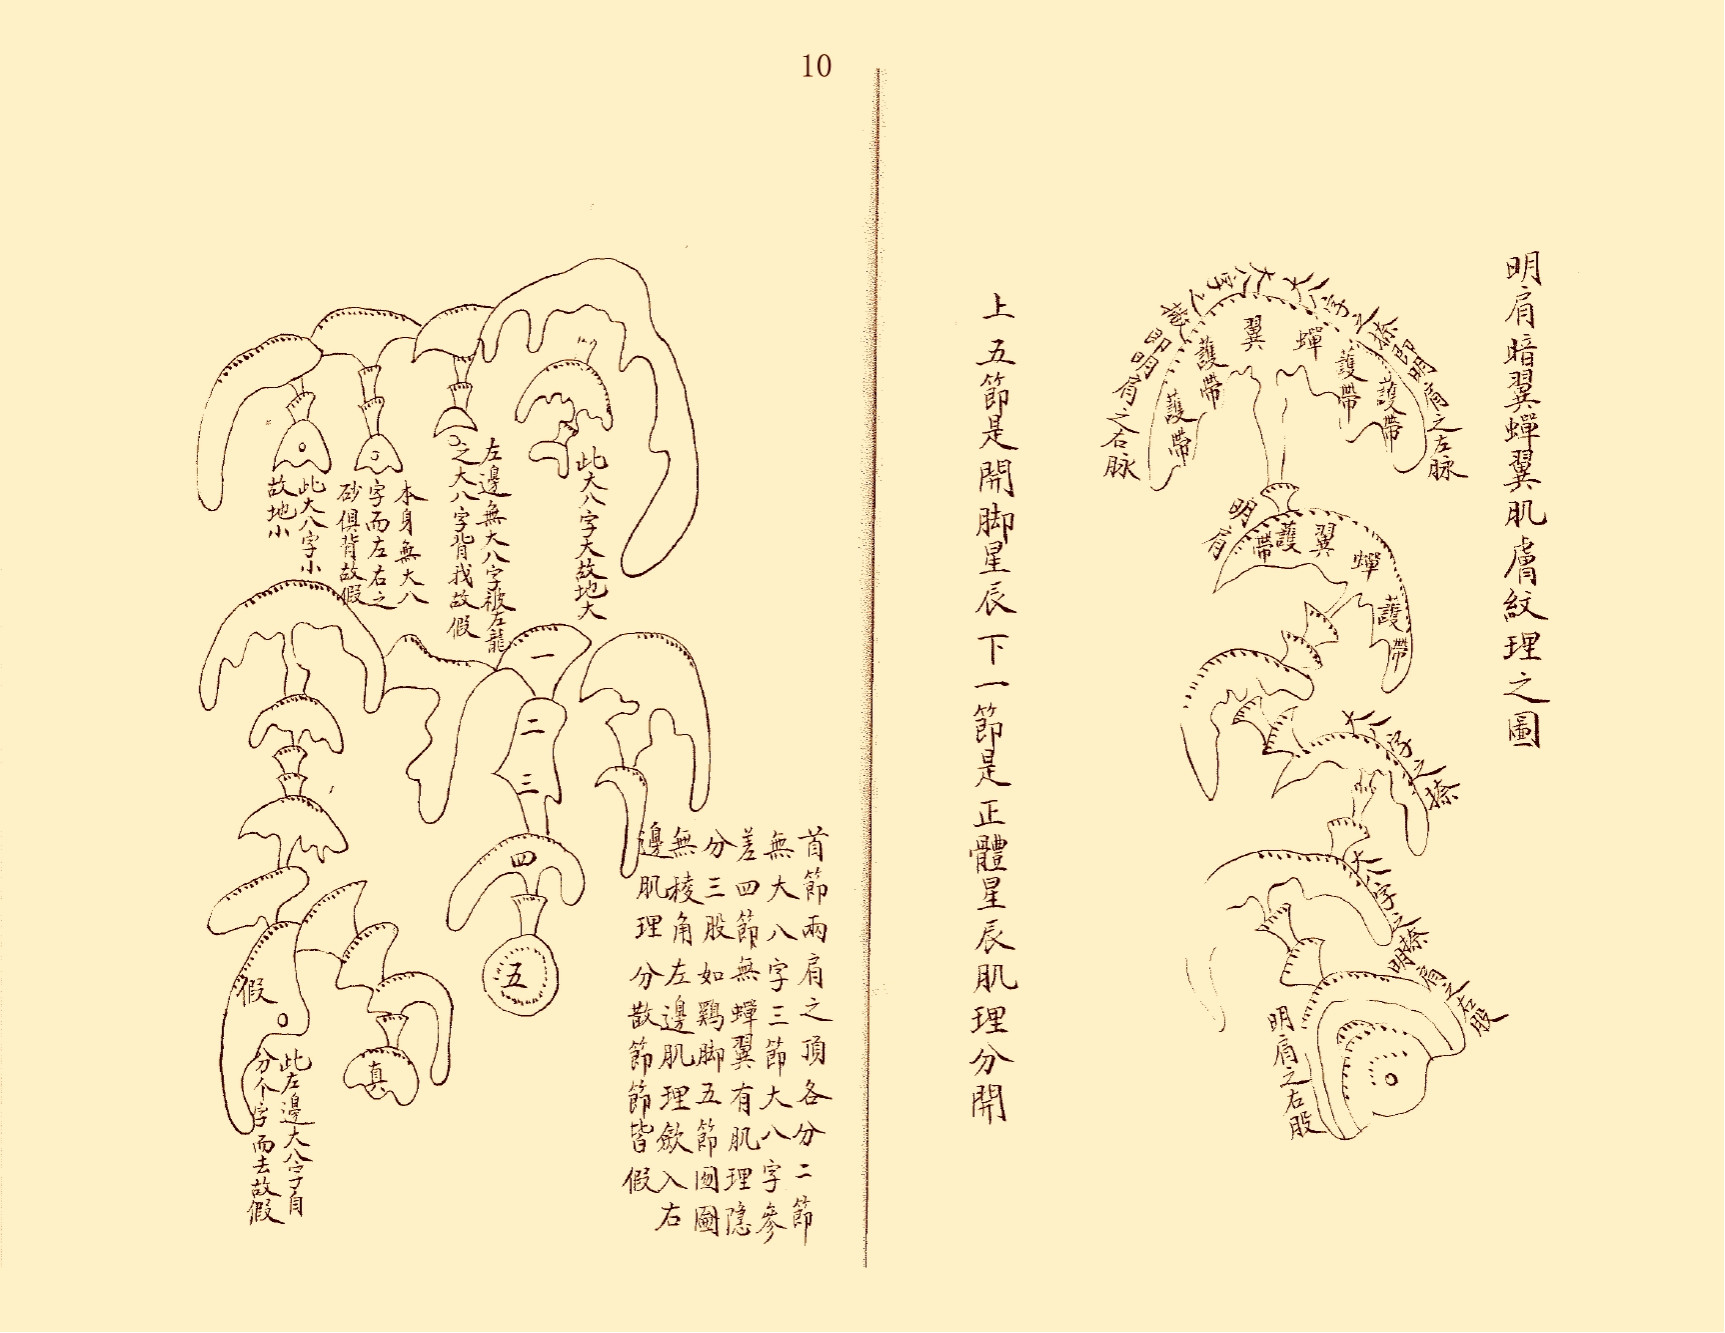 10
明肩暗翼蟬翼肌膚紋理之圖
大八字之撇即明肩之右脉
大八字之捺即明肩之左脉
蟬
翼
護帶
護帶
護帶
護帶
明肩
蟬
翼
護帶
護帶
大八字之捺
大八字之捺
明肩之右股
明肩之右股
上五節是開脚星辰下一節是正體星辰肌理分開
此大八字大故地大
左邊無大八字被左龍
之大八字背我故假
本身無大八
字而左右之
砂俱背故假
此大八字小
故地小
一
二
三
四
五
首節兩肩之頂各分二節
無大八字三節大八字參
差四節無蟬翼有肌理隱
分三股如鷄脚五節囫圇
無稜角左邊肌理斂入右
邊肌理分散節節皆假
假
真
此左邊大八字自
分个字而去故假